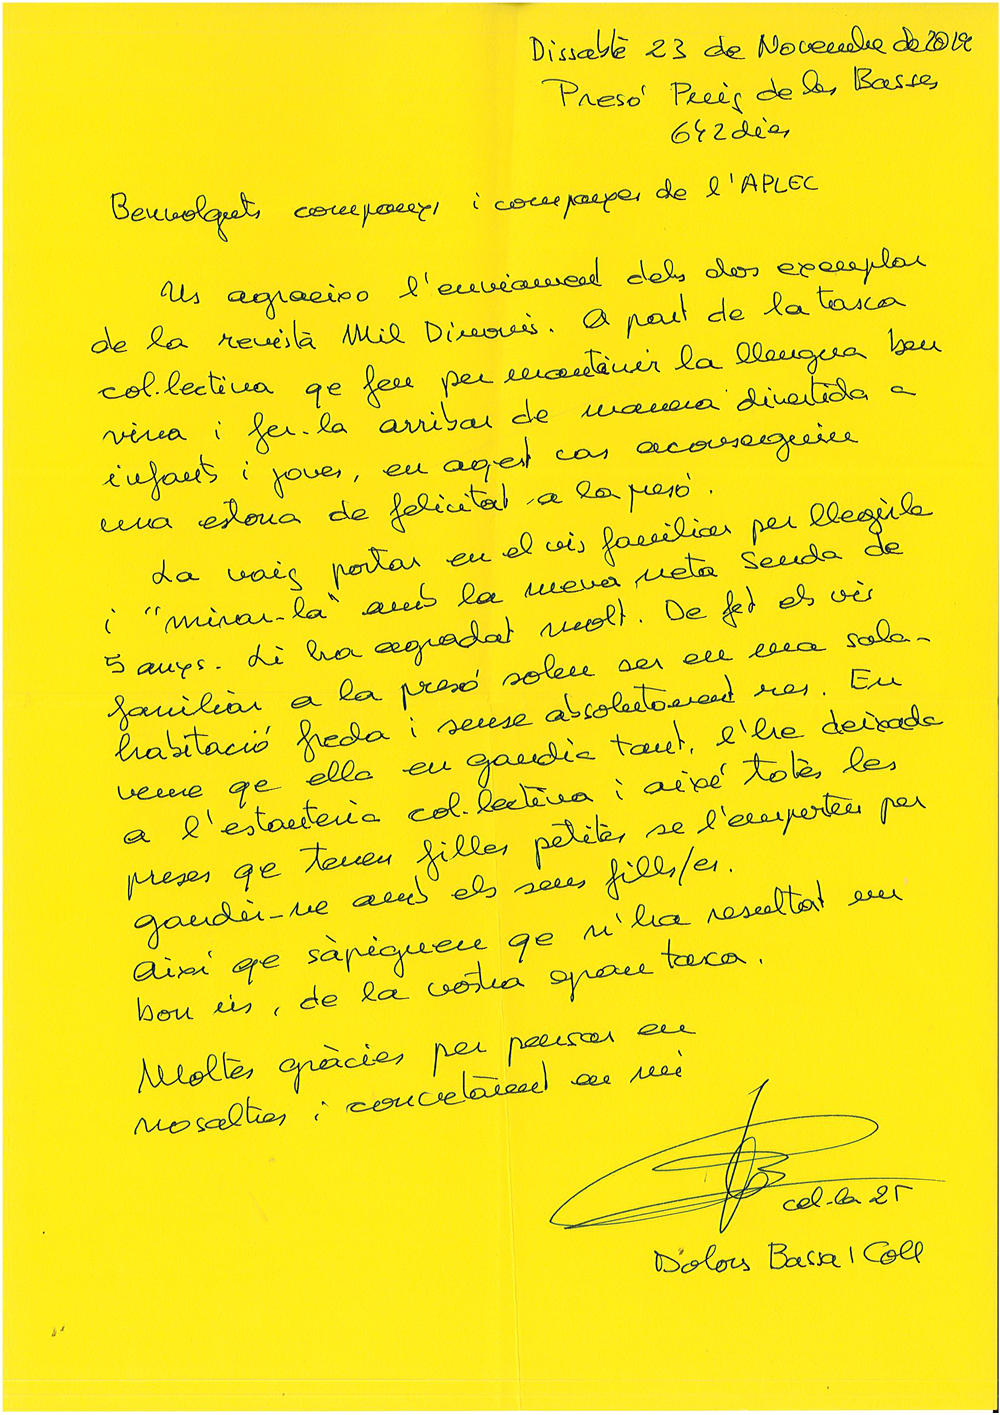 Dissabte 23 de Novembre de 2019
Presó Puig de les Basses
642 dies
Benvolguts companys i companyes de l'APLEC
Us agraeixo l'enviament dels dos exemplar
de la revista Mil Dimonis. A part de la tasca
col.lectiva qe feu per mantenir la llengua ben
viva i fer-la arribar de manera divertida a
infants i joves, en aqest cas aconseguiu
una estona de felicitat a la presó.
La vaig portar en el vis familiar per llegir-la
i "mirar-la" amb la meva neta Senda de
5 anys. Li ha agradat molt. De fet els vis
familiar a la presó solen ser en una sala-
habitació freda i sense absolutament res. En
veure qe ella en gaudia tant, l'he deixada
a l'estanteria col.lectiva i així totes les
preses qe tenen filles petites se l'emporten per
gaudir-ne amb els seus fills/es.
Així qe sàpigueu qe n'ha resultat un
bon ús, de la vostra gran tasca.
Moltes gràcies per pensar en
nosaltres i concretament en mi
cel-la 25
Dolors Bassa i Coll